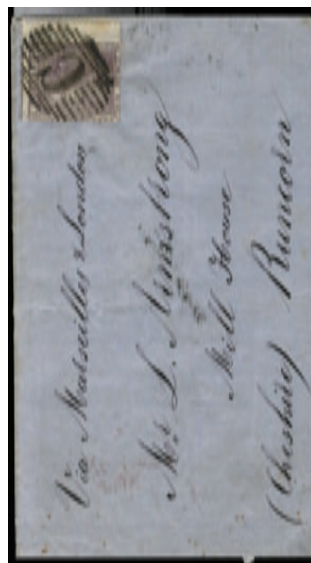 Via Marseilles & London
Mr. L. Armstrong
Mill House
(Cheshire) Runcorn